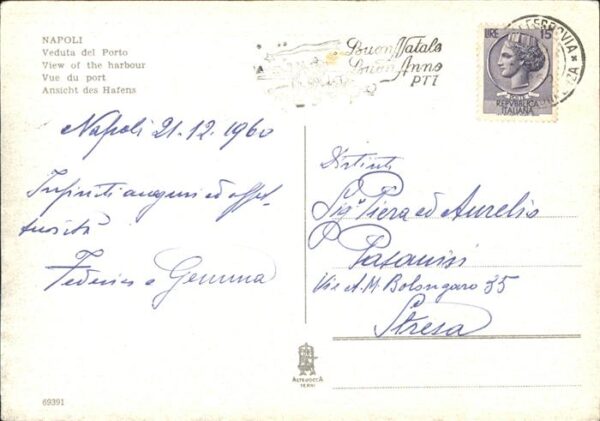 NAPOLI
Veduta del Porto
View of the harbour
Vue du port
Ansicht des Hafens
Buon Natale
Buon Anno
PTT
LIRE 15
POSTE
REPVBBLICA
ITALIANA
FERROVIA
Napoli 21.12.1960
Infiniti auguri ed affet-
tuosità
Federico e Gemma
Distinti
Sigri Piera ed Aurelio
Via A.M. Bolongaro 35
Stresa
TERNI
69391